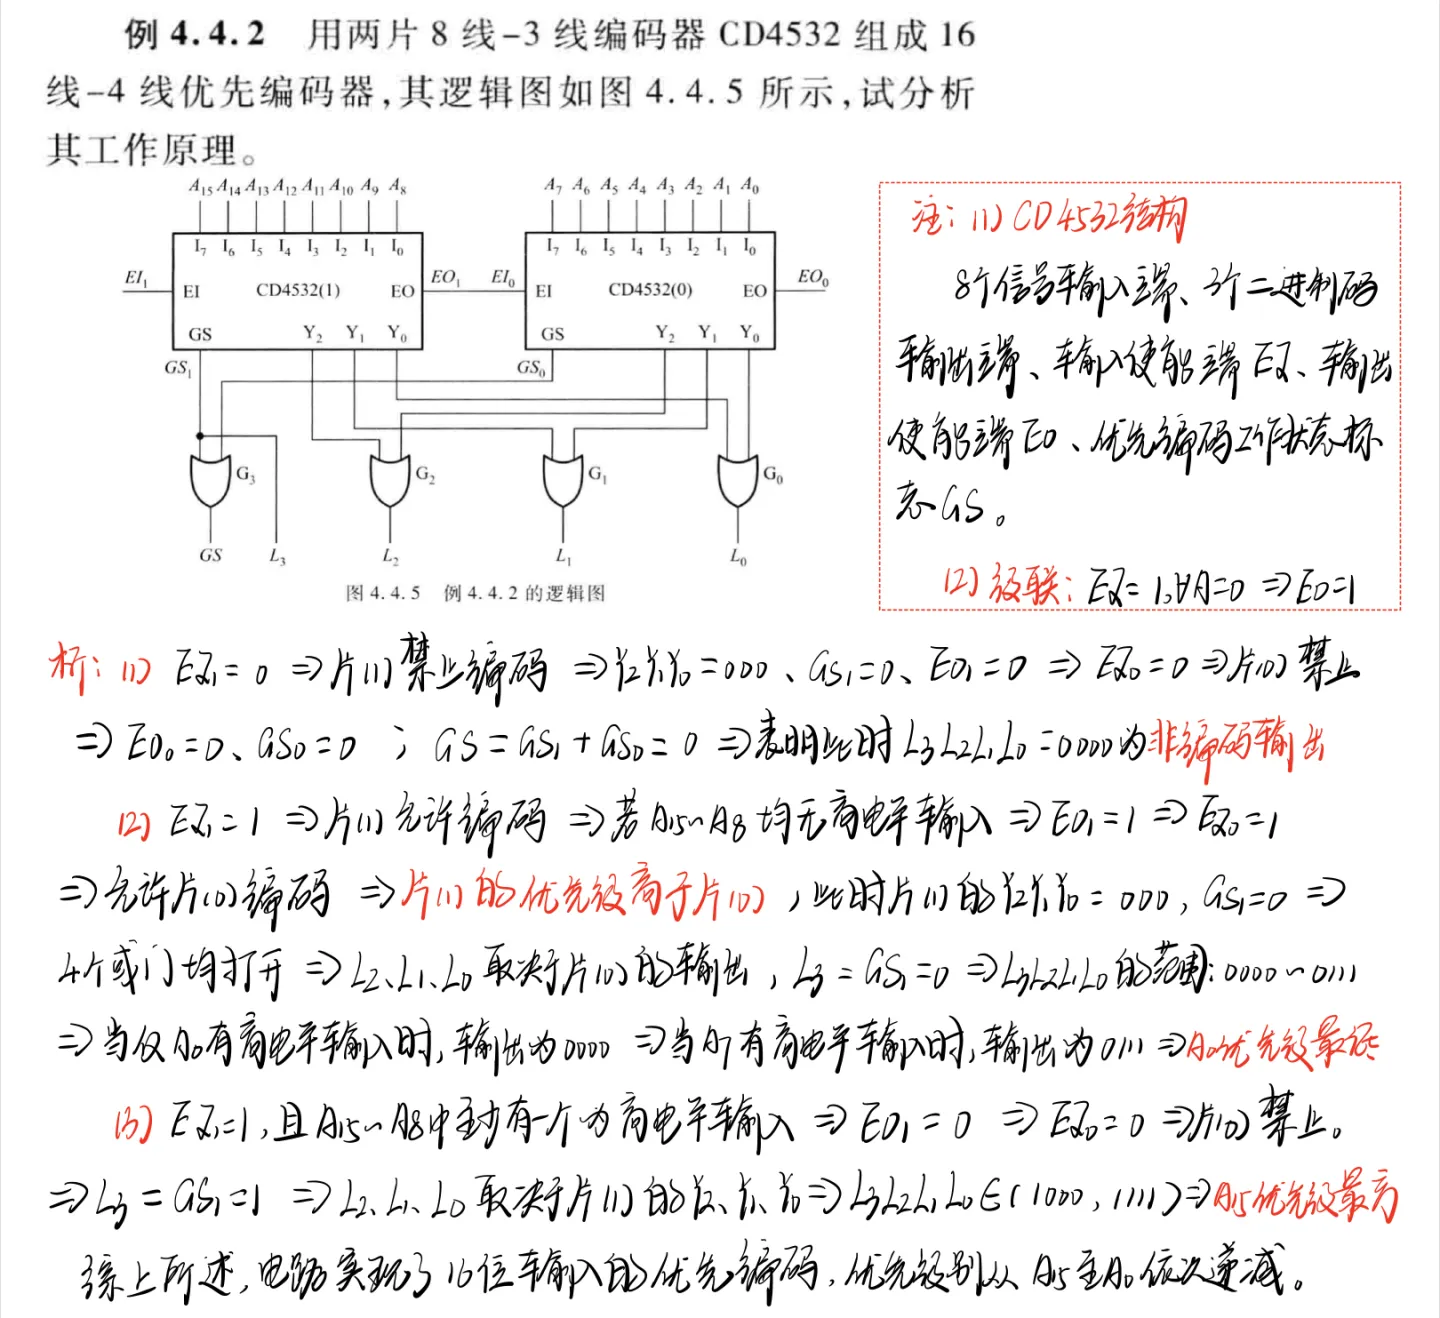 例 4.4.2 用两片 8 线-3 线编码器 CD4532 组成 16
线-4 线优先编码器,其逻辑图如图 4.4.5 所示,试分析
其工作原理。
A15 A14 A13 A12 A11 A10 A9 A8 A7 A6 A5 A4 A3 A2 A1 A0
I7 I6 I5 I4 I3 I2 I1 I0 I7 I6 I5 I4 I3 I2 I1 I0
EI1 EI CD4532(1) EO EO1 EI0 EI CD4532(0) EO EO0
GS Y2 Y1 Y0 GS Y2 Y1 Y0
GS1 GS0
G3 G2 G1 G0
GS L3 L2 L1 L0
图 4.4.5 例 4.4.2 的逻辑图
注: (1) CD4532结构
8个信号输入端、3个二进制码
输出端、输入使能端 EI、输出
使能端 EO、优先编码工作状态标
志 GS。
(2) 级联: EI=1,∀A=0 ⇒ EO=1
析: (1) EI1=0 ⇒ 片(1) 禁止编码 ⇒ Y2Y1Y0=000、GS1=0、EO1=0 ⇒ EI0=0 ⇒ 片(0) 禁止
⇒ EO0=0、GS0=0 ; GS=GS1+GS0=0 ⇒ 表明此时 L3L2L1L0=0000为非编码输出
(2) EI1=1 ⇒ 片(1) 允许编码 ⇒ 若 A15~A8 均无高电平输入 ⇒ EO1=1 ⇒ EI0=1
⇒ 允许片(0) 编码 ⇒ 片(1) 的优先级高于片(0) , 此时片(1) 的 Y2Y1Y0=000, GS1=0 ⇒
4个或门均打开 ⇒ L2、L1、L0 取决于片(0) 的输出, L3=GS1=0 ⇒ L3L2L1L0 的范围: 0000~0111
⇒ 当仅 A0有高电平输入时, 输出为 0000 ⇒ 当 A7 有高电平输入时, 输出为 0111 ⇒ A0优先级最低
(3) EI1=1, 且 A15~A8中至少有一个为高电平输入 ⇒ EO1=0 ⇒ EI0=0 ⇒ 片(0) 禁止。
⇒ L3=GS1=1 ⇒ L2、L1、L0 取决于片(1) 的 Y2、Y1、Y0 ⇒ L3L2L1L0∈(1000, 1111) ⇒ A15优先级最高
综上所述, 电路实现了 16位输入的优先编码, 优先级别从 A15 至 A0 依次递减。